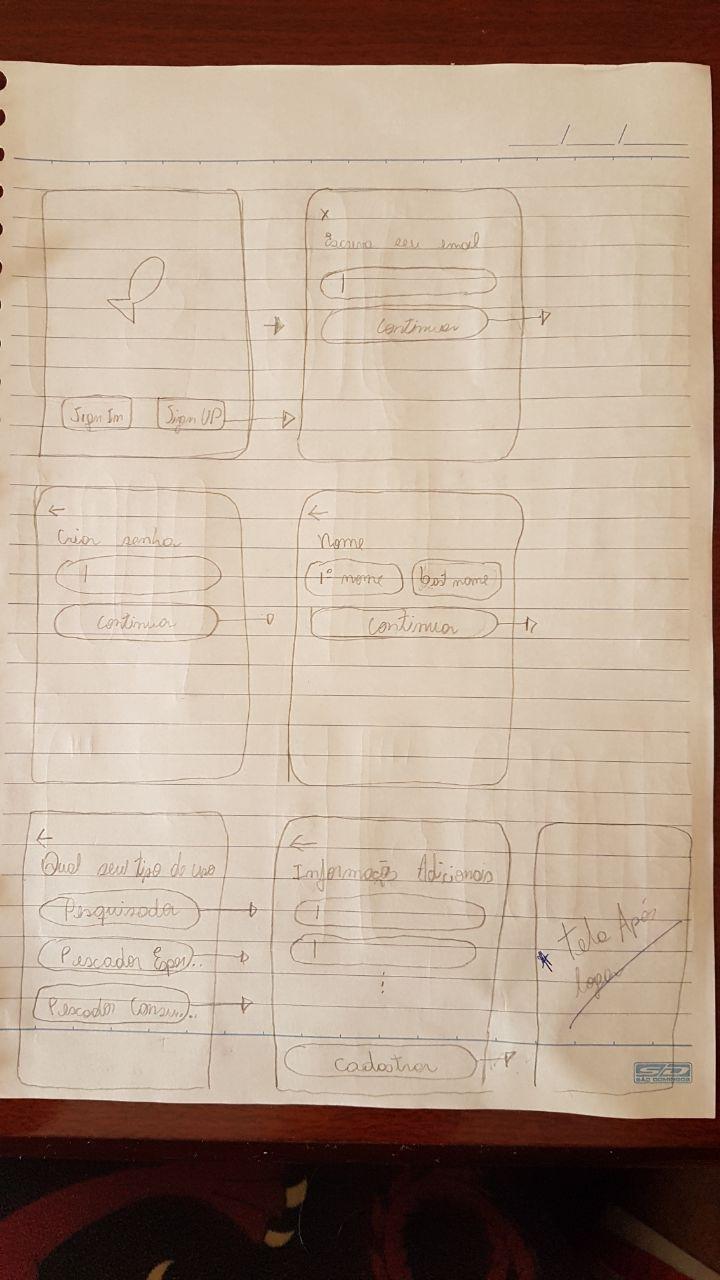 Sign In
Sign UP
x
Escreva seu email
Continuar
←
Criar senha
Continuar
←
Nome
1º nome
last nome
Continuar
←
Qual seu tipo de uso
Pesquisador
Pescador Espor..
Pescador Consu...
←
Informação Adicionais
Cadastrar
* tela Após
logar
SD
SÃO DOMINGOS